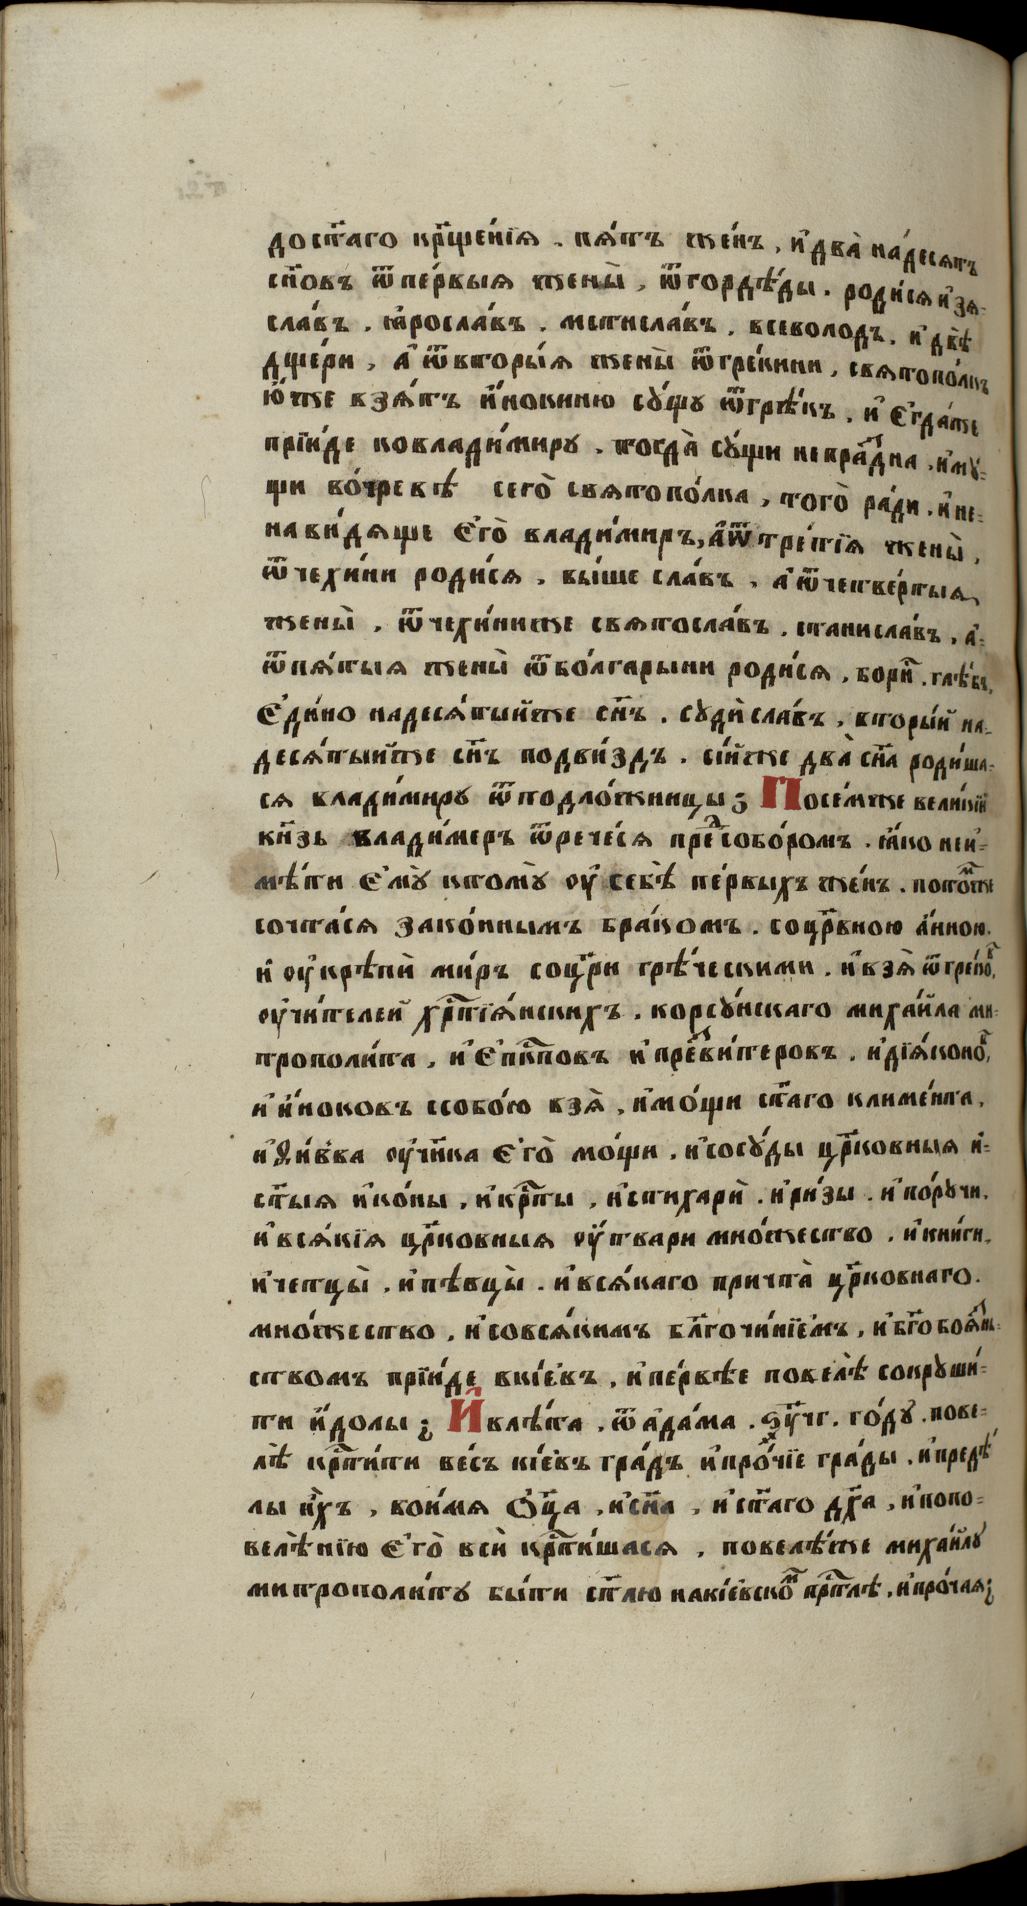 до ст҃аго кр҃ще́нїѧ . пѧ́ть же́нъ , и҆ два̀ на́десѧть
сн҃овъ ѿ пе́рвыѧ жены̀ , ѿ горѣ́ды . роди́сѧ и҆зѧ-
сла́въ . ꙗ҆росла́въ . мстисла́въ . всеволодъ . и҆ двѣ̀
дще́ри , а҆ ѿ вторы́ѧ жены̀ ѿ гре́кини , свѧтопо́лкъ
ю҆́же взѧ́тъ и҆́нокиню сꙋ́щꙋ ѿ грѣ́къ . и҆ є҆гда́же
прїи́де ко влади́миру . тогда̀ сꙋ́щи непра́здна . и҆мꙋ́-
щи во́чревѣ сего̀ свѧтопо́лка , того̀ ра́ди . и҆ не-
нави́дѧще є҆го̀ влади́миръ, а҆ ѿ тре́тїѧ жены̀ ,
ѿ чехи́ни роди́сѧ . вы́ше сла́въ . а҆ ѿ четве́ртыѧ
жены̀ . ѿ чехи́ниже свѧтосла́въ . станисла́въ . а҆-
ѿ пѧ́тыѧ жены̀ ѿ бо́лгарыни роди́сѧ . бори́с . глѣ́бъ,
Є҆ди́но надесѧ́тыйже сн҃ъ . сꙋди̇̀сла́въ . вторы́й на-
десѧ́тыйже сн҃ъ подви́здъ . сі́йже два̀ сн҃а роди́ша-
сѧ влади́миру ѿ подло́жницы ; Посе́мже вели́кїй
кн҃зь влади́меръ ѿрече́сѧ пред собо́ромъ . ꙗ҆́ко не и҆-
мѣ́ти є҆мꙋ̀ ктомꙋ̀ ᲂу҆ себѐ пе́рвыхъ же́нъ . пото́мже
сочта́сѧ зако́ннымъ бра́комъ . со цр҃вною а҆́нною .
и҆ ᲂу҆крѣпѝ ми́ръ со цр҃и грѣ́ческими . и҆ взѧ̀ ѿ гре́ковъ,
ᲂу҆чи́телей хр҃тїѧ́нскихъ . корсꙋ́нскаго миха́йла ми-
трополи́та , и҆ Є҆пк҃повъ и҆ пресви́теровъ . и҆ дїѧ́коновъ,
и҆ и҆́ноковъ ссобо́ю взѧ̀ , и҆ мо́щи ст҃аго климе́нта ,
и҆ ѳи́вва ᲂу҆чн҃ка є҆го̀ мо́щи . и҆ сосꙋ́ды цр҃ковныѧ и҆-
ст҃ыѧ и҆ко́ны , и҆ кр҃ты , и҆ стихарѝ . и҆ ри́зы . и҆ по́рꙋчи .
и҆ всѧ́кїѧ цр҃ковныѧ ᲂу҆́твари мно́жество . и҆ кни́ги .
и҆ чтецы̀ . и҆ пѣвцы̀ . и҆ всѧ́каго причта̀ цр҃ковнаго .
мно́жество , и҆ со всѧ́кимъ бл҃гочи́нїемъ , и҆ бг҃обоѧ́зн-
ствомъ прїи́де в кі́евъ , и҆ пе́рвѣе повелѣ̀ сокрꙋши́-
ти и҆́долы ; И҆ в лѣ́та . ѿ а҆да́ма . ѕ҃ у҃чг . го́дꙋ . пове-
лѣ̀ кр҃ти́ти ве́сь кі́евъ гра́дъ и҆ про́чїе гра́ды . и҆ предѣ́-
лы и҆́хъ , во и҆́мѧ Ѻ҆ц҃а , и҆ сн҃а , и҆ ст҃аго дх҃а , и҆ попо-
велѣ́нїю є҆го̀ всѝ кр҃ти́шасѧ , повелѣ́же миха́йлꙋ
митрополи́тꙋ бы́ти ст҃лю на кі́евском пр҃тлѣ . и҆ про́чаѧ ;